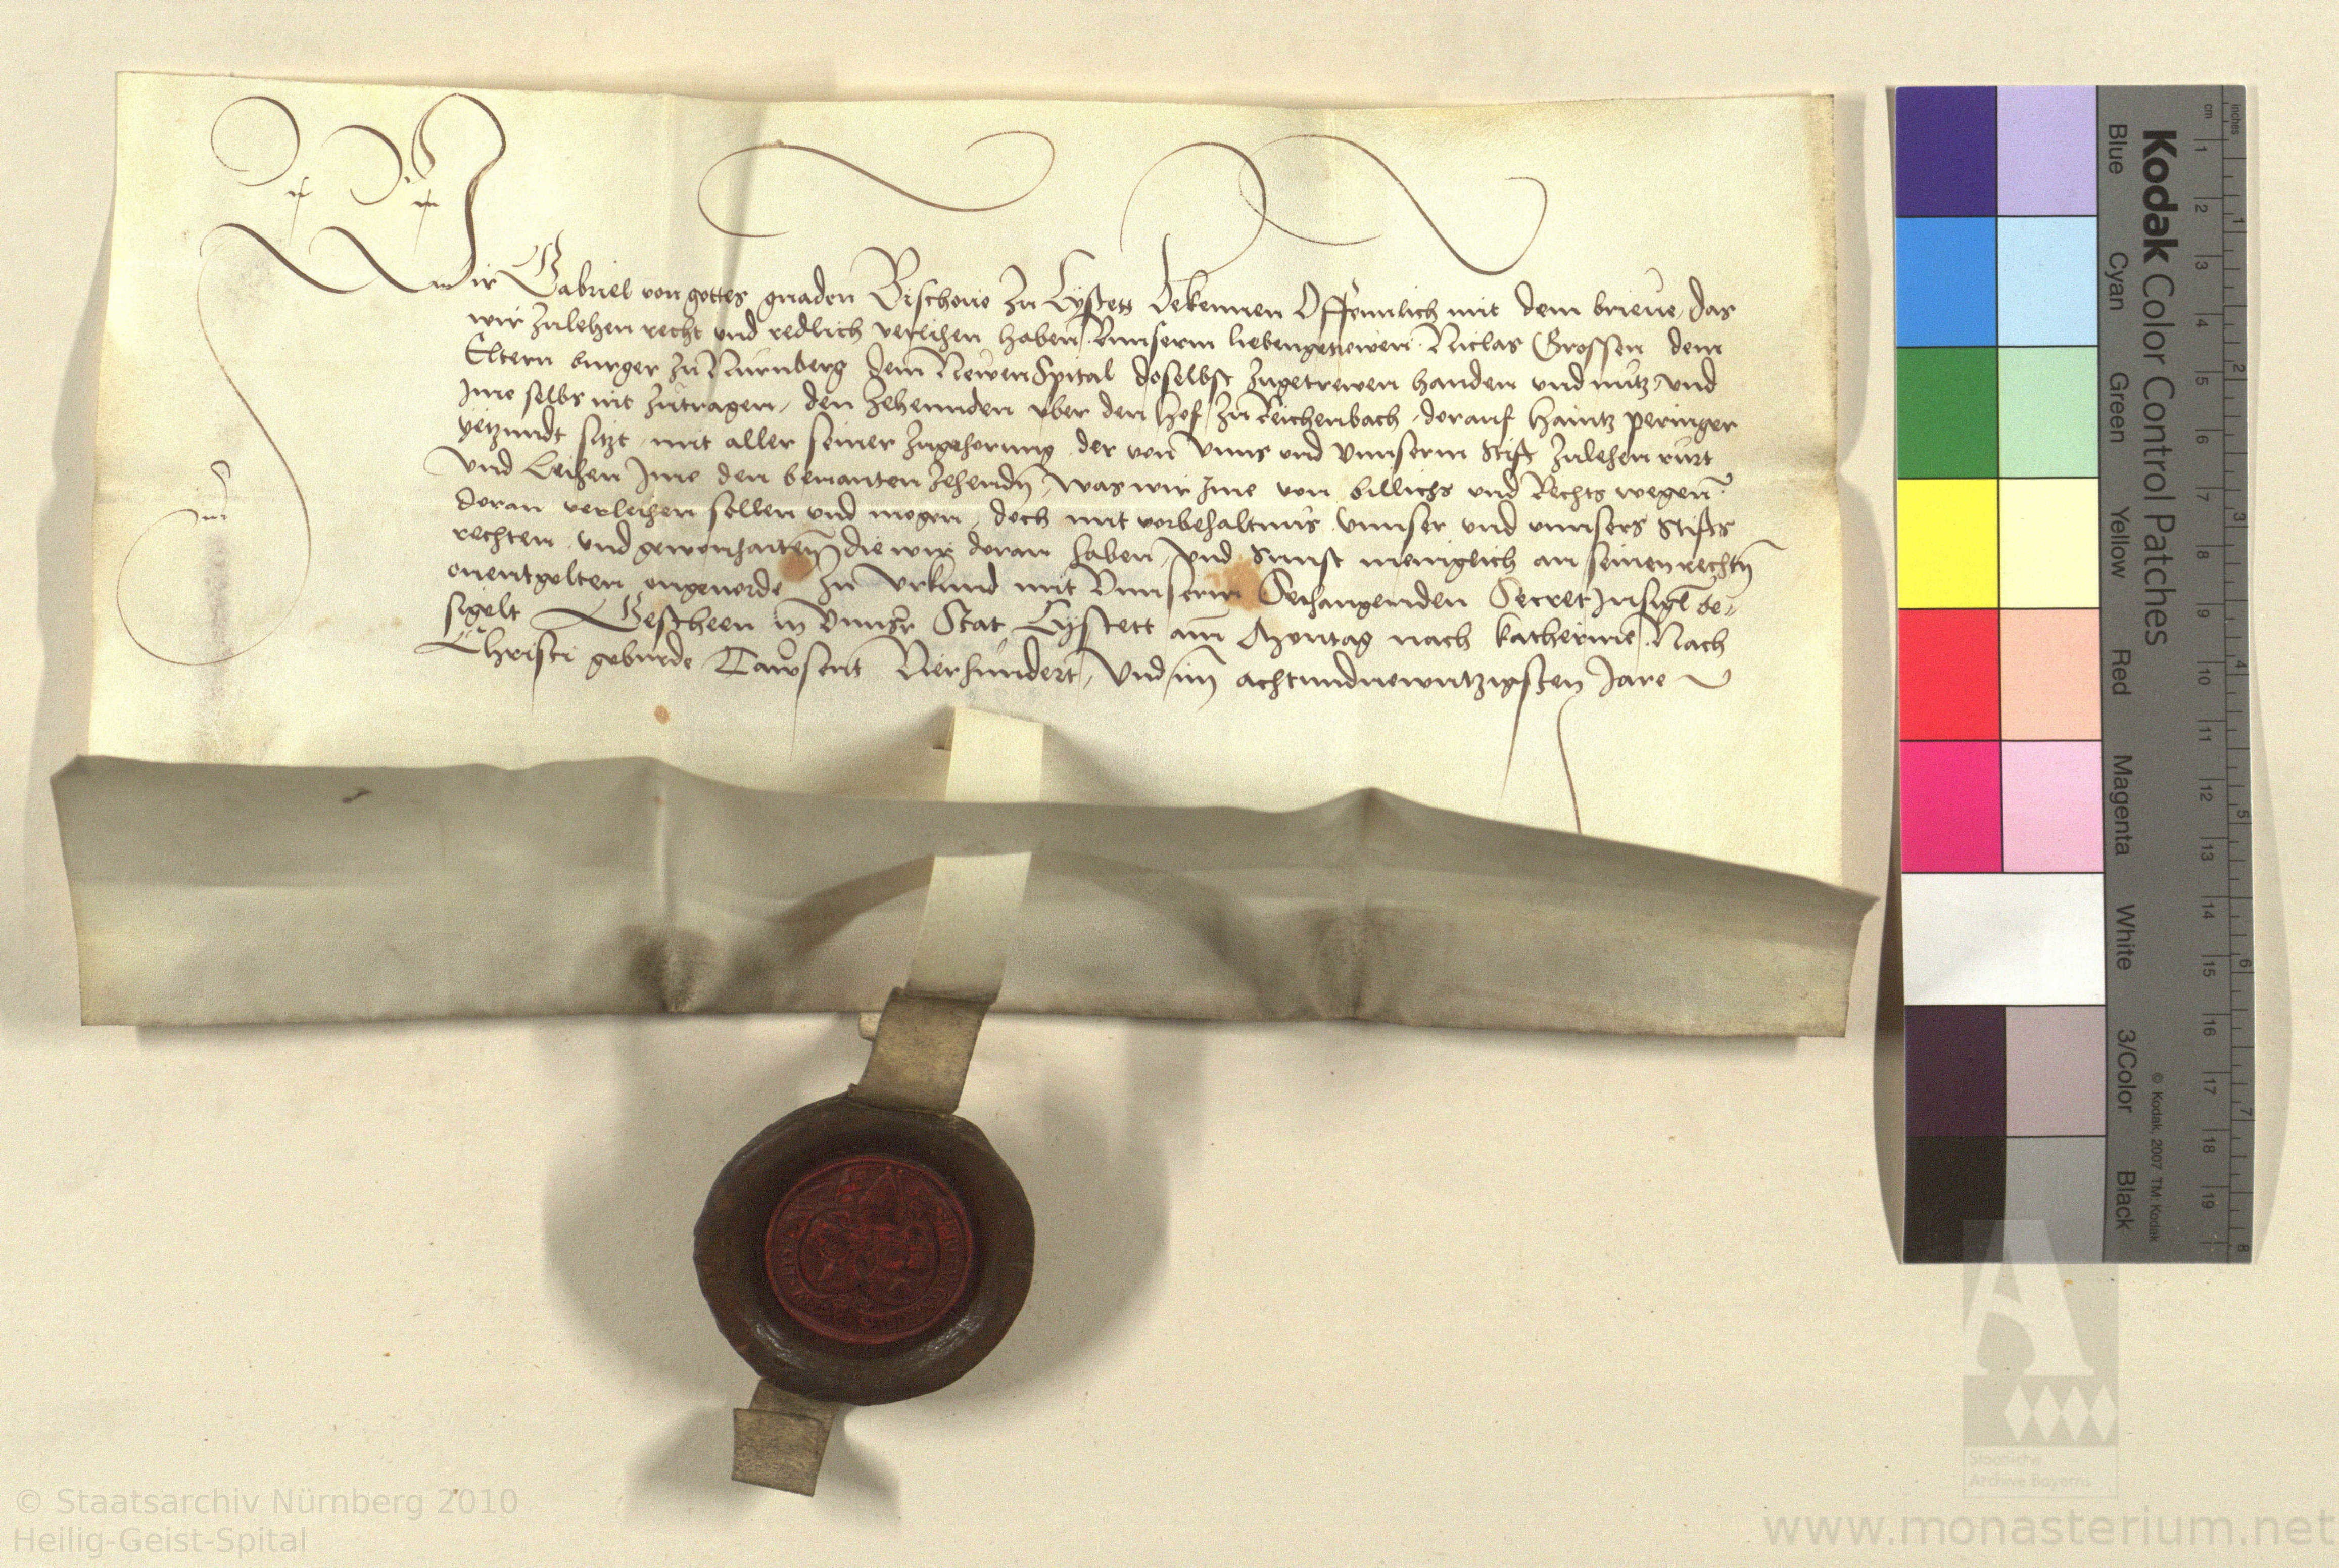 Wir Gabriel von gottes gnaden Bischoue zu Eystett Bekennen Offennlich mit dem brieue, das
wir zulehen recht vnd redlich verlihen haben Vnnserm liebengetrewen Niclas Grossen dem
Eltern burger zu Nurmberg dem Newen Spital doselbst zugetrewen handen vnd nutz vnd
Ime selbs nit zutragen, den zehennden vber den hof zu Reichenbach, dorauf Haintz Peringer
yetzundt sitzt, mit aller seiner zugehorung der von vnns vnd vnnserm Stift zulehen rurt
Vnd Leihen Ime den benanten zehendn, was wir Ime von billichs vnd Rechts wegen
doran verleihen sollen vnd mogen, doch mit vorbehaltnus vnnser vnd vnnsers Stifts
rechten vnd gewonhaiten die wir doran haben, vnd sunst meniglich an seinen rechtn
onentgolten ongeuerde Zu vrkund mit Vnnserm Anhangenden Secret Insigl be-
sigelt Gescheen in Vnnser Stat Eystett am Montag nach Katherine Nach
Christi geburde Tawsent Vierhundert, Vnd im achtundnewntzigsten Jare
Kodak Color Control Patches
Blue Cyan Green Yellow Red Magenta White 3/Color Black
© Kodak, 2007 TM: Kodak
inches 1 2 3 4 5 6 7 8
cm 1 2 3 4 5 6 7 8 9 10 11 12 13 14 15 16 17 18 19
Staatliche
Archive Bayerns
© Staatsarchiv Nürnberg 2010
Heilig-Geist-Spital
www.monasterium.net